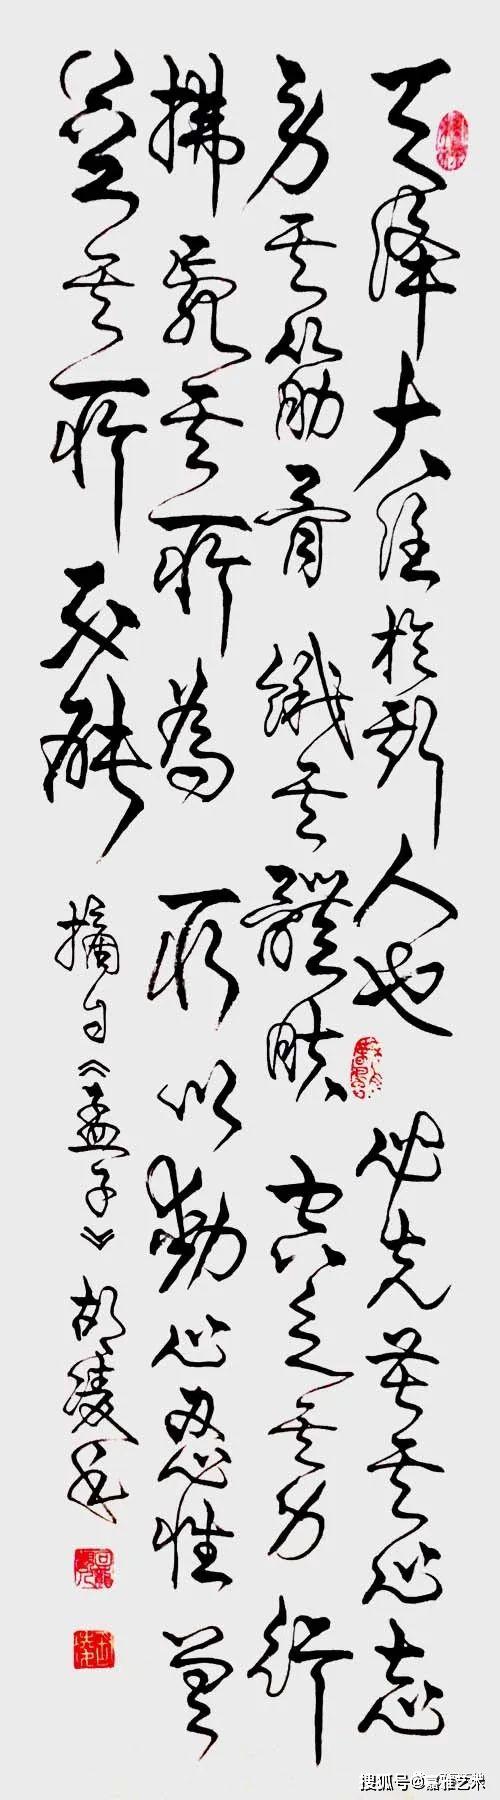 天降大任於斯人也必先苦其心志
劳其筋骨餓其體肤空乏其身行
拂亂其所為所以動心忍性曾
益其所不能
摘自《孟子》胡凌
搜狐号@嘉雅艺术